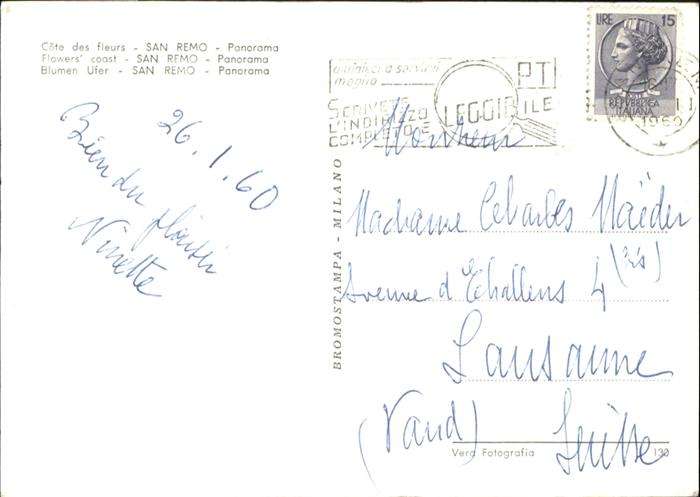 Côte des fleurs - SAN REMO - Panorama
Flowers' coast - SAN REMO - Panorama
Blumen Ufer - SAN REMO - Panorama
26.1.60
Bien du plaisir
Ninette
BROMOSTAMPA - MILANO
LIRE 15
REPVBBLICA
ITALIANA
1960
a servirvi
meglio
PT
SCRIVETE
L'INDIRIZZO
COMPLETO E
LEGGIBILE
Monsieur
Madame Charles Maëder
Avenue d'Echallens 4 (bis)
Lausanne
(Vaud) Suisse
Vera Fotografia
130